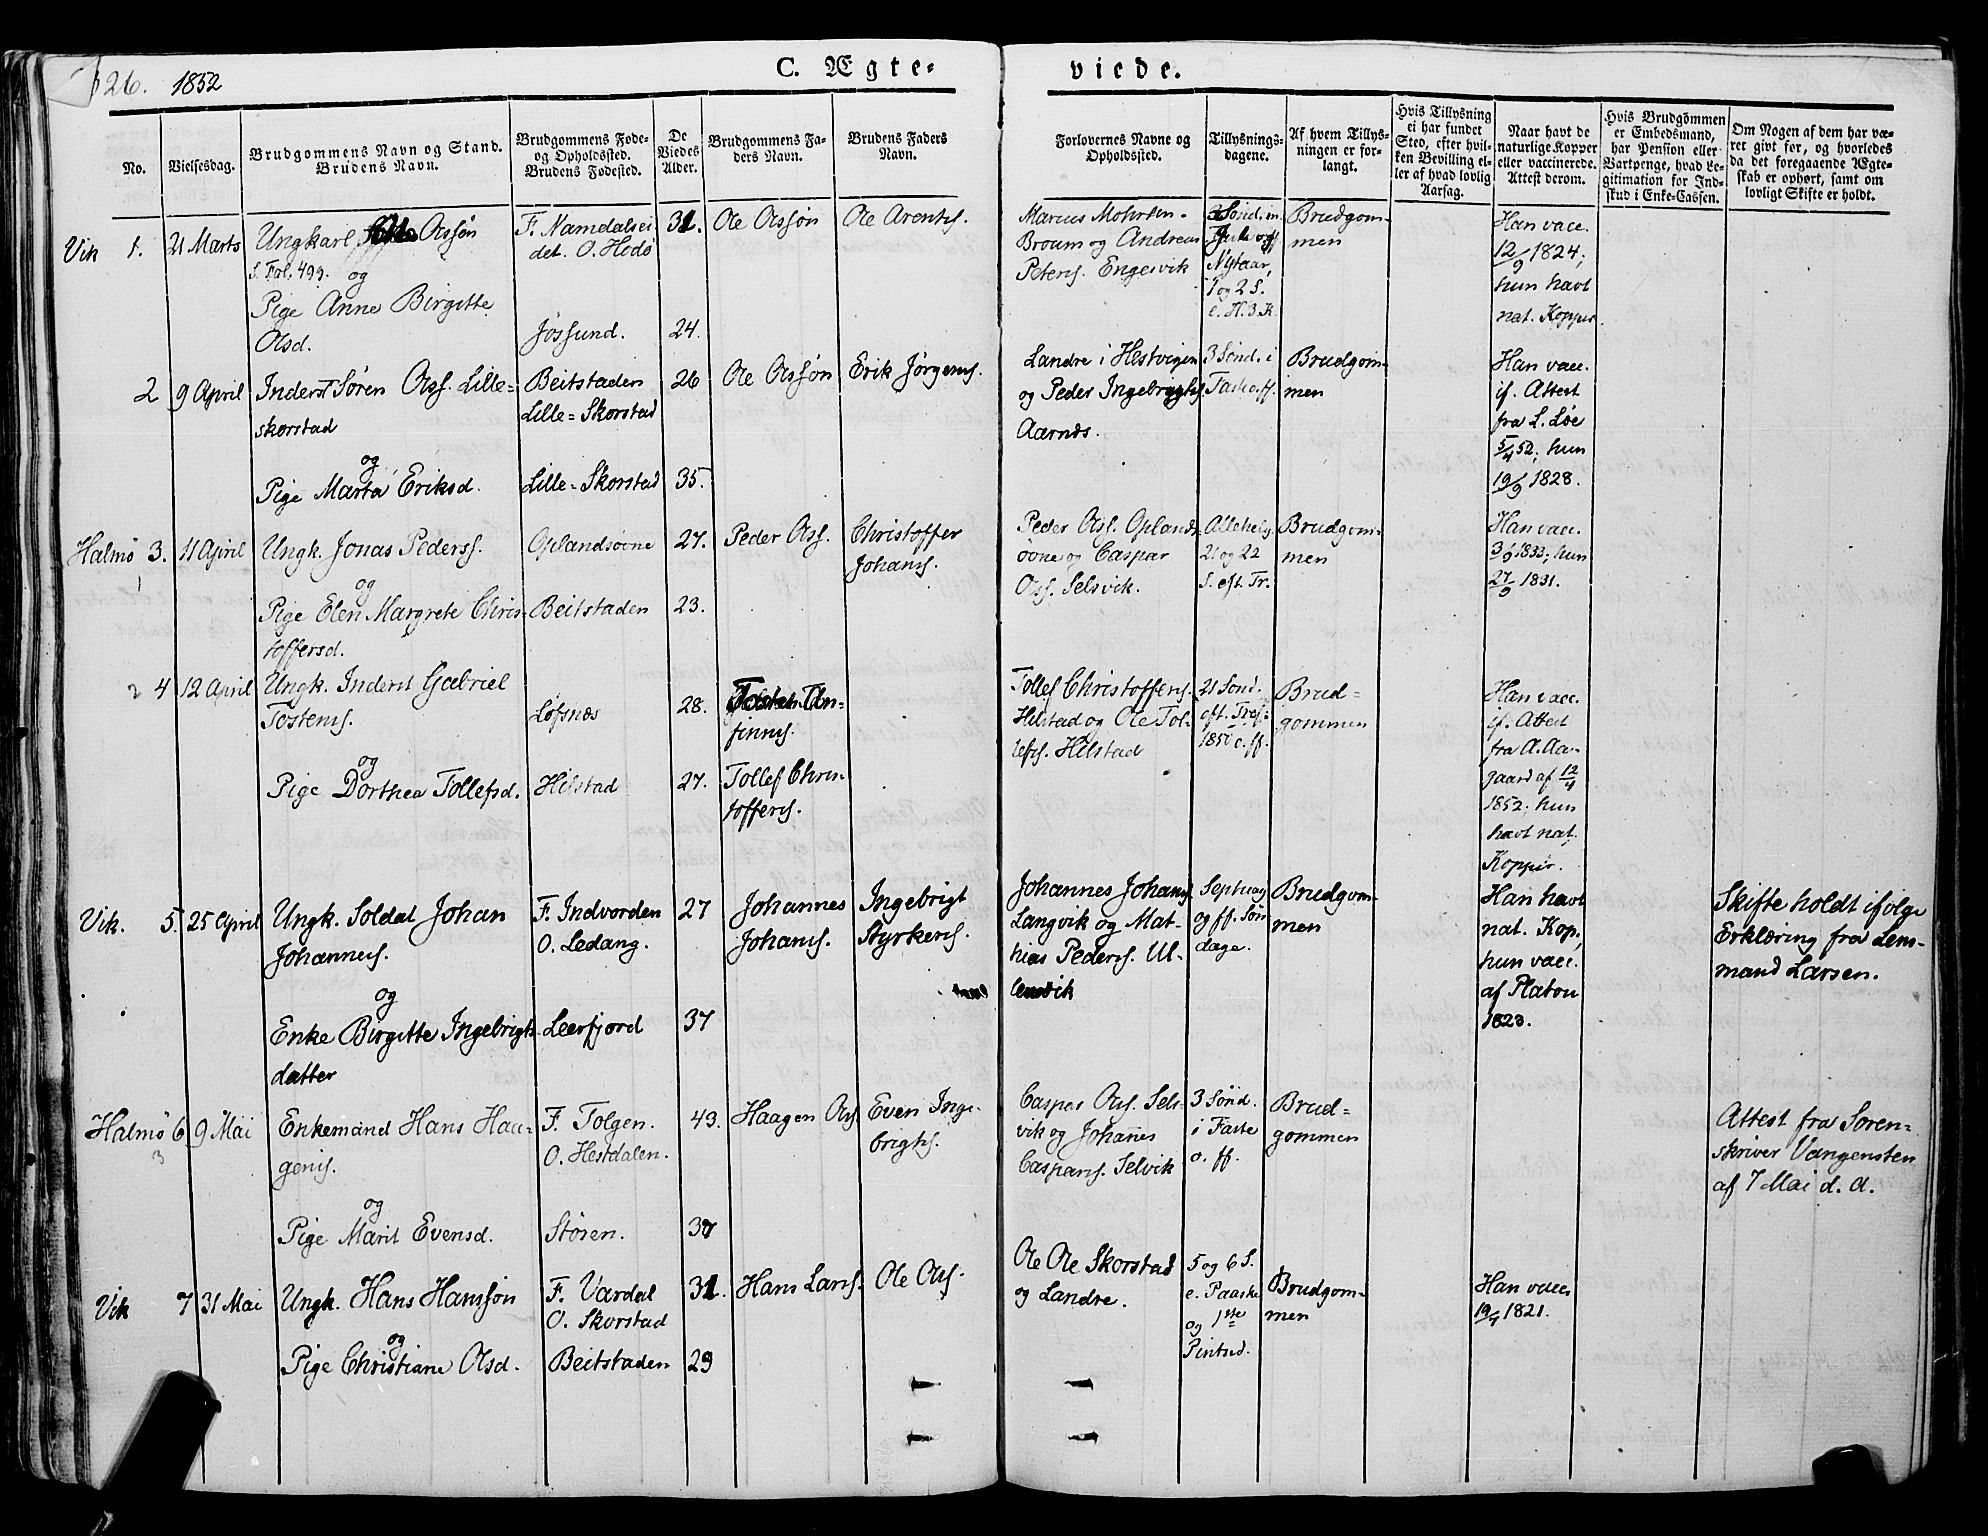 26. 1852
C. Ægte-
viede.
No.
Vielsesdag.
Brudgommens Navn og Stand.
Brudens Navn.
Brudgommens Føde-
og Opholdssted.
Brudens Fødested.
De
Viedes
Alder.
Brudgommens Fa-
ders Navn.
Brudens Faders
Navn.
Forlovernes Navne og
Opholdssted.
Tillysnings-
dagene.
Af hvem Tillys-
ningen er for-
langt.
Hvis Tillysning
ei har fundet
Sted, efter hvil-
ken Bevilling el-
ler af hvad lovlig
Aarsag.
Naar havt de
naturlige Kopper
eller vaccinerede.
Attest derom.
Hvis Brudgommen
er Embedsmand,
har Pension eller
Vartpenge, hvad Le-
gitimation for Ind-
skud i Enke-Cassen.
Om Nogen af dem har væ-
ret givt før, og hvorledes
da det foregaaende Ægte-
skab er ophørt, samt om
lovligt Skifte er holdt.
Vik 1. 21 Marts
Ungkarl Olssøn
S. Fol. 499. og
Pige Anne Birgitte
Olsd.
F. Namdalsei
det. O. Hodø
Jøssund.
31.
24.
Ole Olssøn
Ole Arents.
Marcus Mohrsen
Broum og Andreas
Peters. Engesvik
3 Sønd. in
Jule og
Nytaar,
1 og 2 S.
e. H. 3 K.
Brudgom-
men
Han vacc.
12/9 1824;
hun havt
nat. Kopper.
2 9 April
Inderst Søren Ols. Lille-
skorstad
og
Pige Marta Eriksd.
Beitstaden
Lille-Skorstad
Lille-Skorstad
26
35.
Ole Olssøn
Erik Jørgens.
Landre i Hestvigen
og Peder Ingebrigts.
Aarnes.
3 Sønd. i
Faste o. ff.
Brudgom-
men
Han vacc.
if. Attest
fra L. Løe
5/4 52; hun
19/9 1828.
Halmø 3. 11 April
1
Ungk. Jonas Peders.
og
Pige Elen Margrete Chris-
toffersd.
Oplandsøvne
Beitstaden
27.
23.
Peder Ols.
Christoffer
Johans.
Peder Ols. Oplands-
øvne og Caspar
Ols. Selsvik.
Allehelg.
21 og 22
S. eft. Tr.
Brudgom-
men
Han vacc.
3/9 1833; hun
27/9 1831.
2 4 12 April
Ungk. Inderst Gabriel
Tostens.
og
Pige Dorthea Tollefsd.
Løfsnæs
Hilstad
28.
27.
Tosten Un-
finns.
Tollef Chris-
toffers.
Tollef Christoffers.
Hilstad og Ole Tol-
lefs. Hilstad
21 Sønd.
eft. Tref.
1850 o. ff.
Brud-
gommen
Han vacc.
if. Attest
fra A. Aa-
gaard af 12/4
1852. hun
havt nat.
Kopper.
Vik. 5. 25 April
Ungk. Soldat Johan
Johannes.
og
Enke Birgitte Ingebrigts-
datter
F. Indvorden
O. Ledang.
Leerfjord
27
37
Johannes
Johans.
Ingebrigt
Styrkers.
Johannes Johans.
Langvik og Mat-
hias Peders. Ul-
lensvik
Septuag
og ff. Søn
dage.
Brudgom-
men
Han havt
nat. Kop.
hun vacc.
af Platou
1823.
Skifte holdt ifølge
Erklæring fra Lens-
mand Larsen.
Halmø 6 9 Mai
3
Enkemand Hans Haa-
gens.
og
Pige Marit Evensd.
F. Tolgen.
O. Hestdalen.
Støren.
43.
37
Haagen Ols.
Even Inge-
brigts.
Caspar Ols. Sels-
vik og Johannes
Caspars. Selvik
3 Sønd.
i Faste
o. ff.
Brud-
gommen
Attest fra Soren-
skriver Vangensten
af 7 Mai d. A.
Vik 7 31 Mai
Ungk. Hans Hanssøn
og
Pige Christiane Olsd.
F. Vardal
O. Skorstad
Beitstaden
31.
29
Hans Lars.
Ole Ols.
Ole Ole Skorstad
og Landre.
5 og 6 S.
e. Paaske
og 1ste
Pintsd.
Brudgom-
men
Han vacc
19/7 1821.